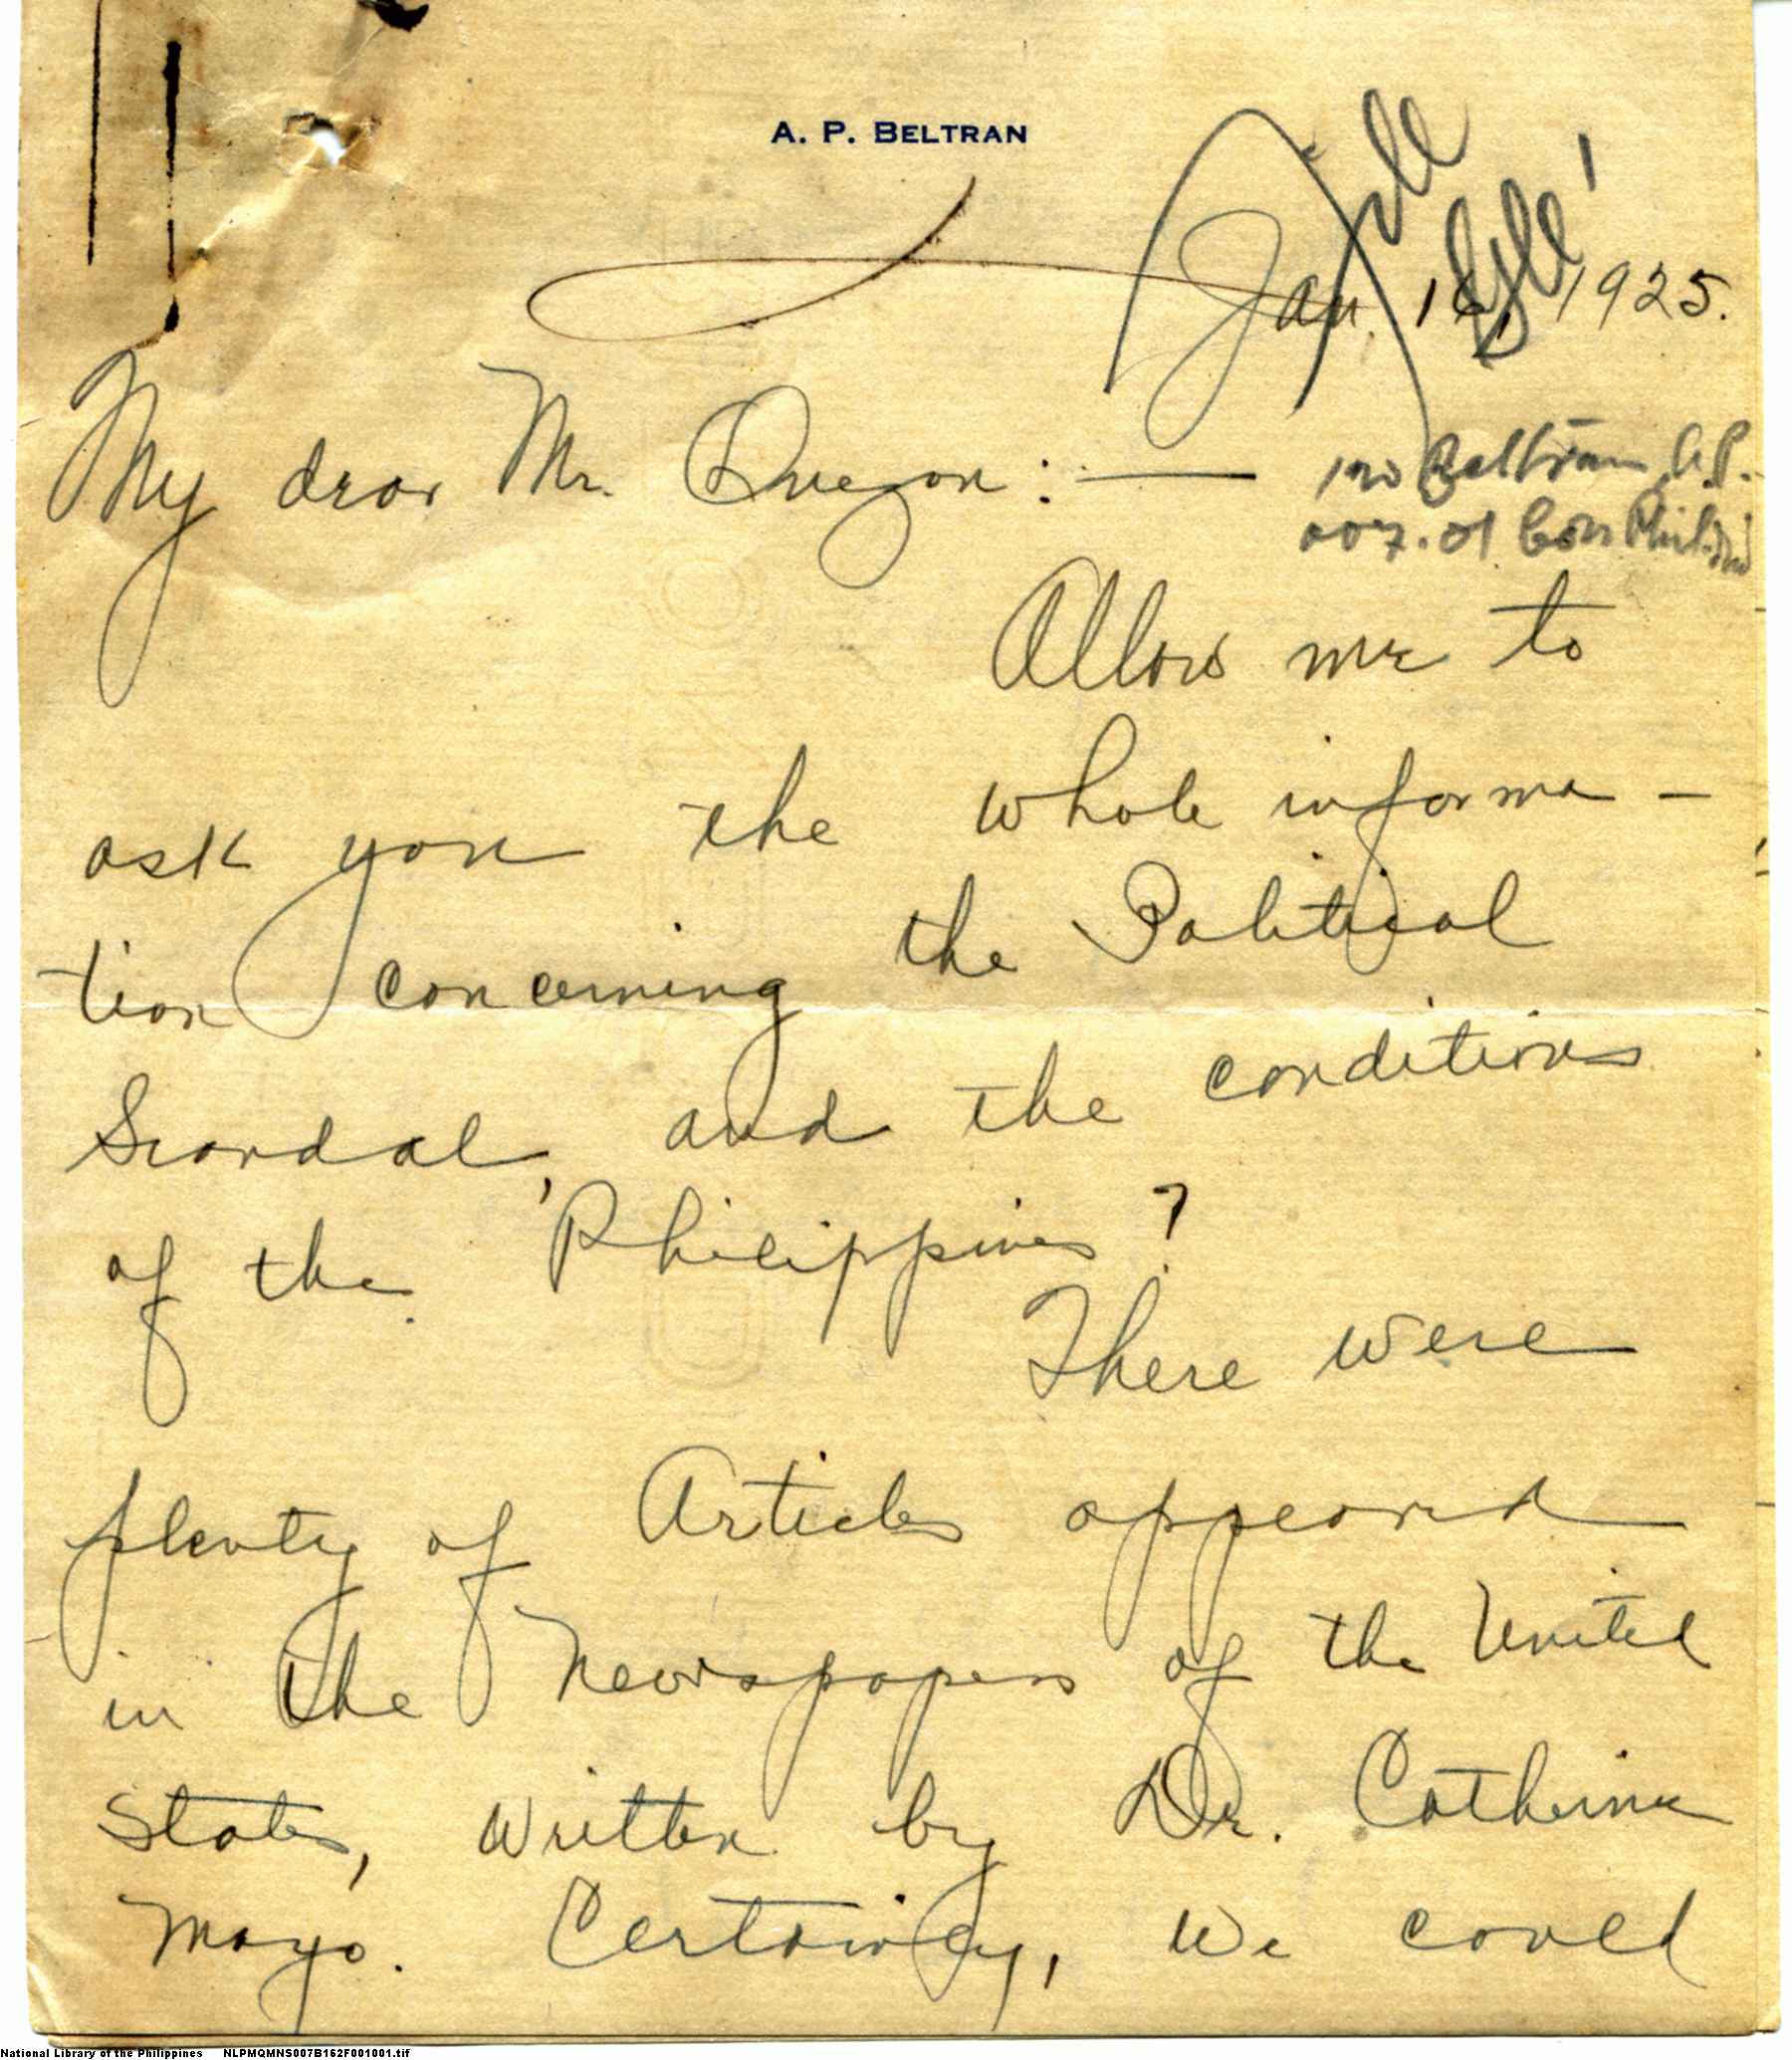 A. P. BELTRAN
Jan. 16, 1925.
My dear Mr. Quezon: —
Beltran, A.P.
Allow me to
ask you the whole informa-
tion concerning the Political
Scandal, and the conditions
of the Philippines?
There were
plenty of Articles appeared
in the Newspapers of the United
States, written by Dr. Catherine
Mayo. Certainly, we could
National Library of the Philippines NLPMQMNS007B162F001001.tif